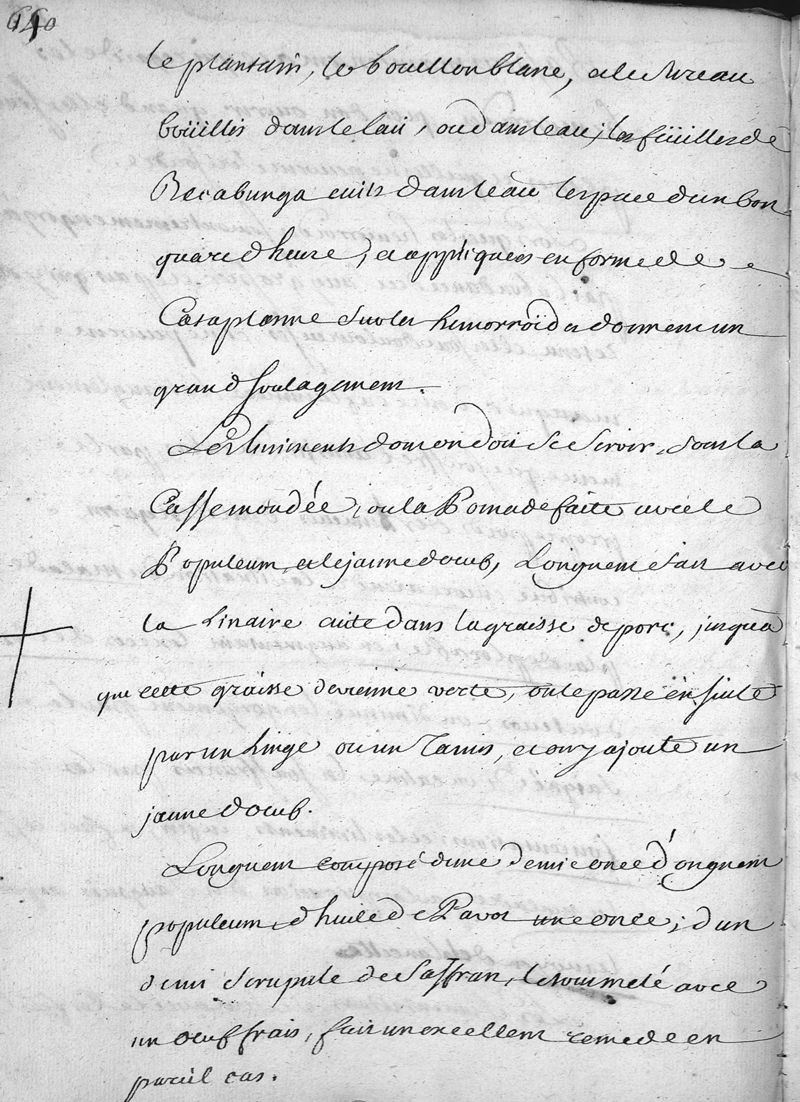 640
le plantain, le bouillon blanc, et le sureau
boüillis dans le lait, ou dans l'eau; les füilles de
Becabunga cuits dans l'eau l'espace d'un bon
quart d'heure, et appliquees en forme de
Cataplasme sur les hemorroïdes donnent un
grand soulagement.
Les liniments dont on doit se servir, sont la
Casse mondée, ou la Pomade faite avec le
Populeum, et le jaune d'oeuf, L'onguent fait avec
la Linaire cuite dans la graisse de porc, jusqu'a
que cette graisse devienne verte, on le passe ensuite
par un linge ou un Tamis, et on y ajoute un
jaune d'oeuf.
L'onguent composé d'une demie once d'onguent
populeum, d'huile de Pavot une once, d'un
demi scrupule de Saffran, le tout melé avec
un oeuf frais, fait un excellent remede en
pareil cas.